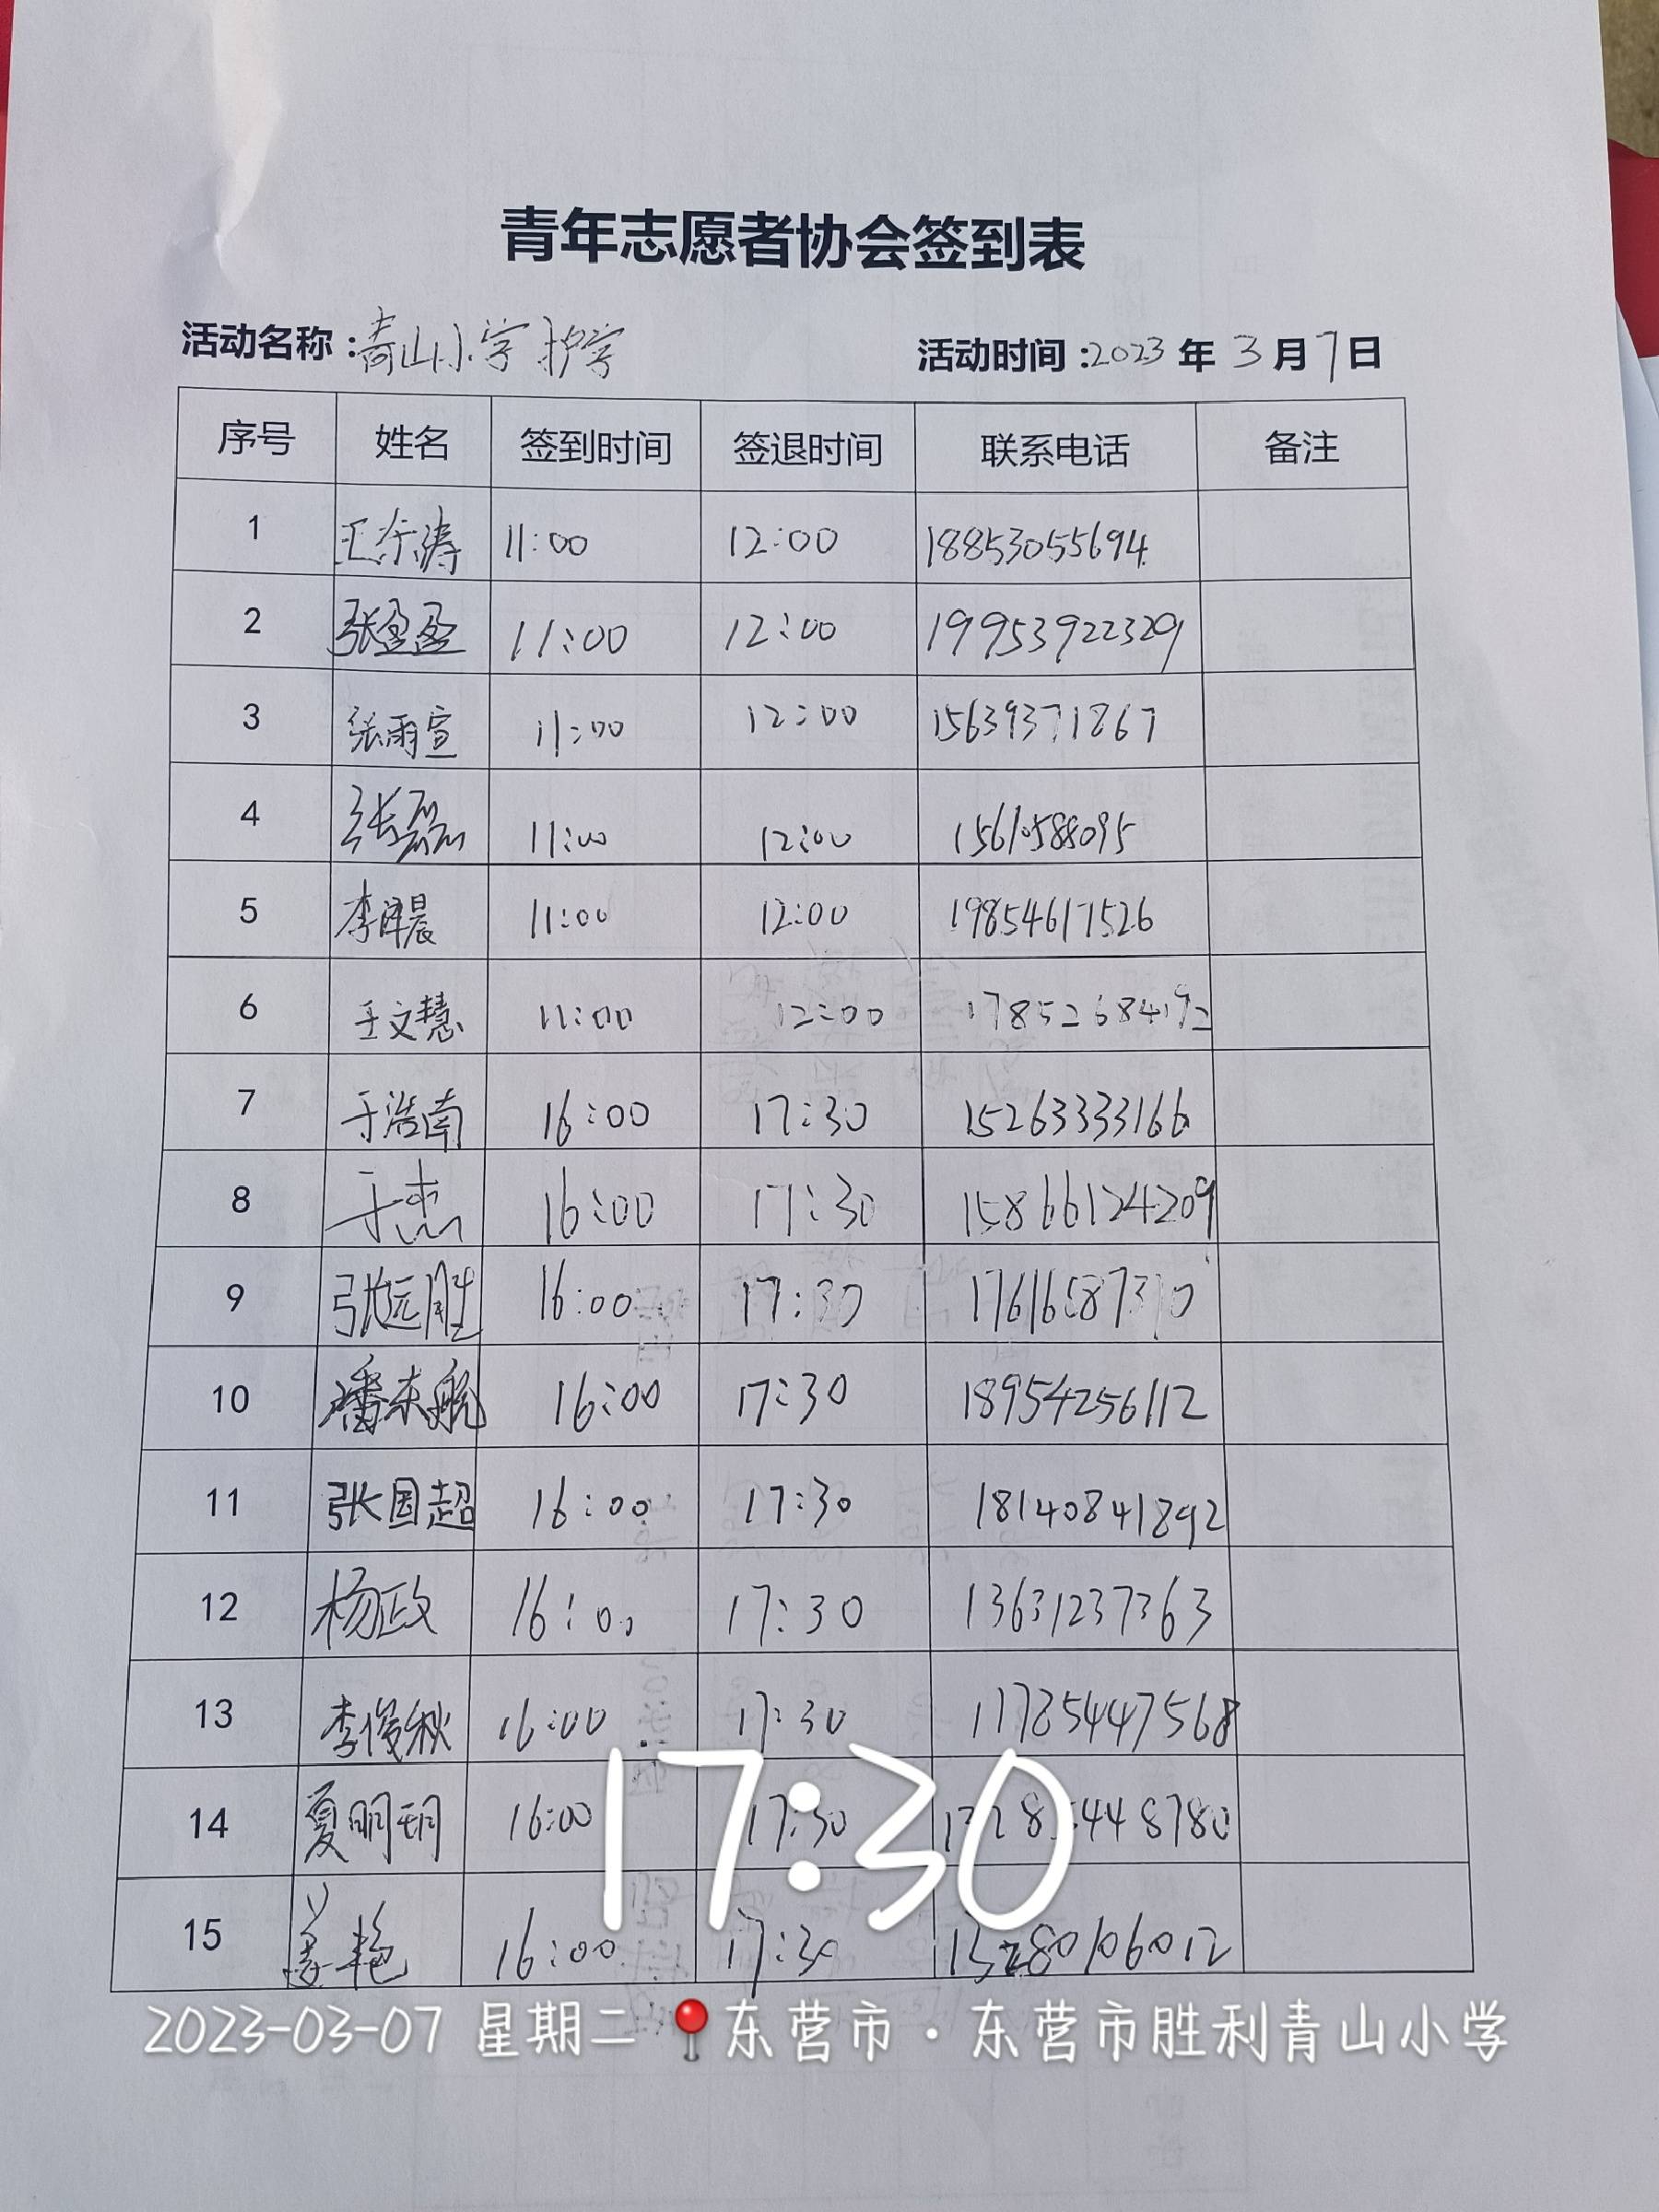 青年志愿者协会签到表
活动名称:青山小学护学 活动时间:2023年3月7日
序号 姓名 签到时间 签退时间 联系电话 备注
1 王 涛 11:00 12:00 18853055694
2 张盈盈 11:00 12:00 19953922329
3 张雨宣 11:00 12:00 15639371867
4 张磊 11:00 12:00 15610588095
5 李泽晨 11:00 12:00 19854617526
6 王文慧 11:00 12:00 17852684192
7 于浩南 16:00 17:30 15263333166
8 于惠 16:00 17:30 15866124209
9 张远胜 16:00 17:30
10 潘東航 16:00 17:30 18954256112
11 张国超 16:00 17:30 18140841892
12 杨政 16:00 17:30 13631237363
13 李俊秋 16:00 17:30 11785447568
14 夏明玥 16:00 17:30
15 姜艳 16:00 17:30
17:30
2023-03-07 星期二 东营市·东营市胜利青山小学